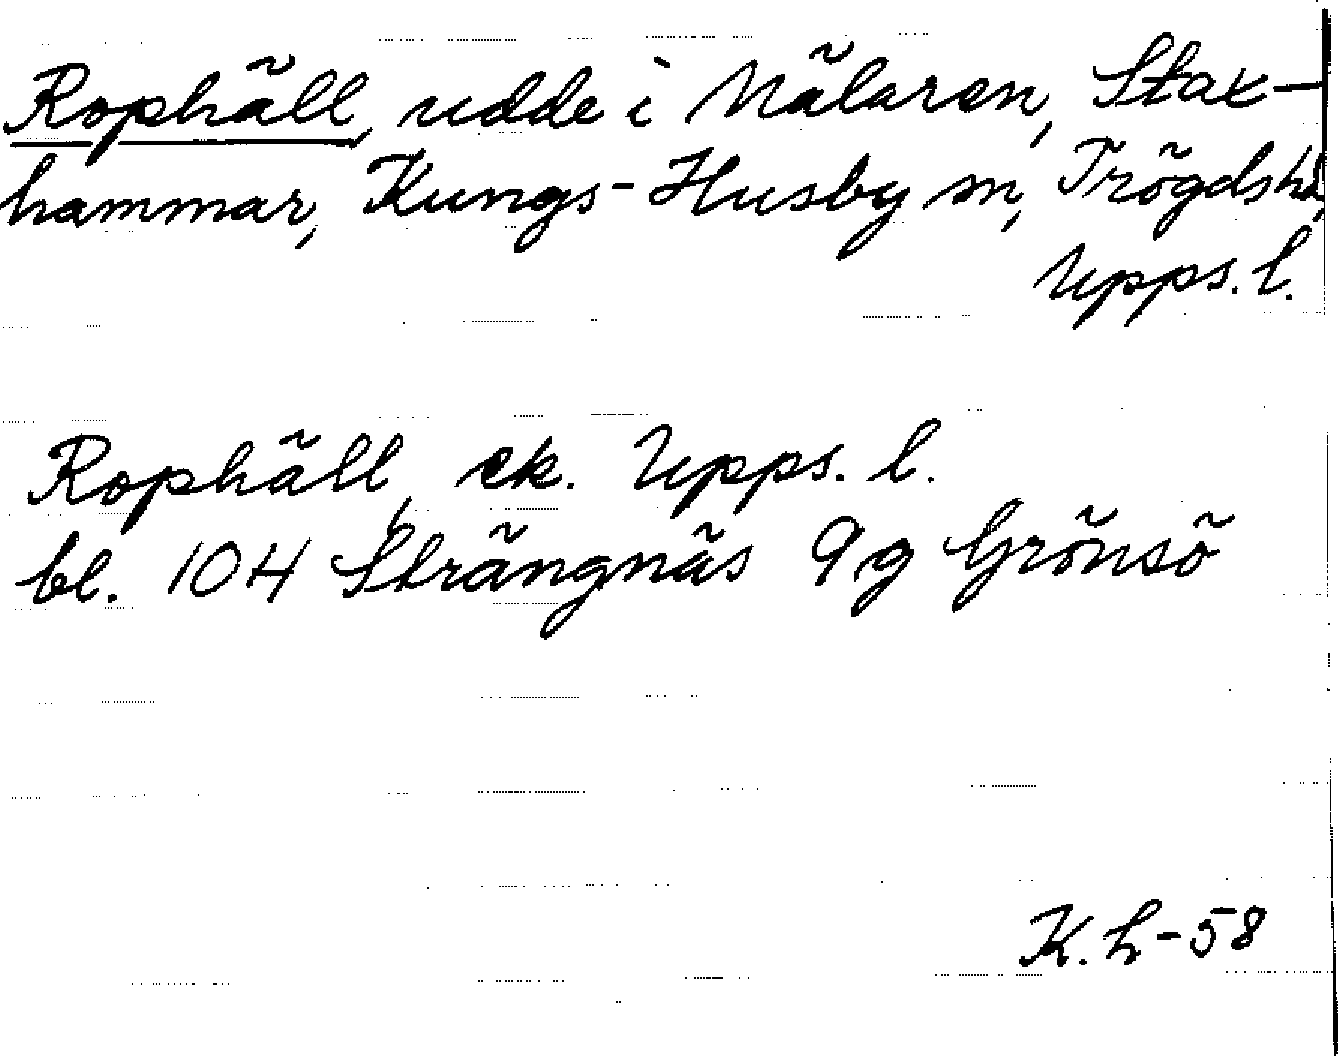 Rophäll, udde i Mälaren, Stax-
hammar, Kungs-Husby sn, Trögds hd,
Upps. l.
Rophäll, ek. Upps. l.
bl. 104 Strängnäs 9g Grönsö
K. h-58